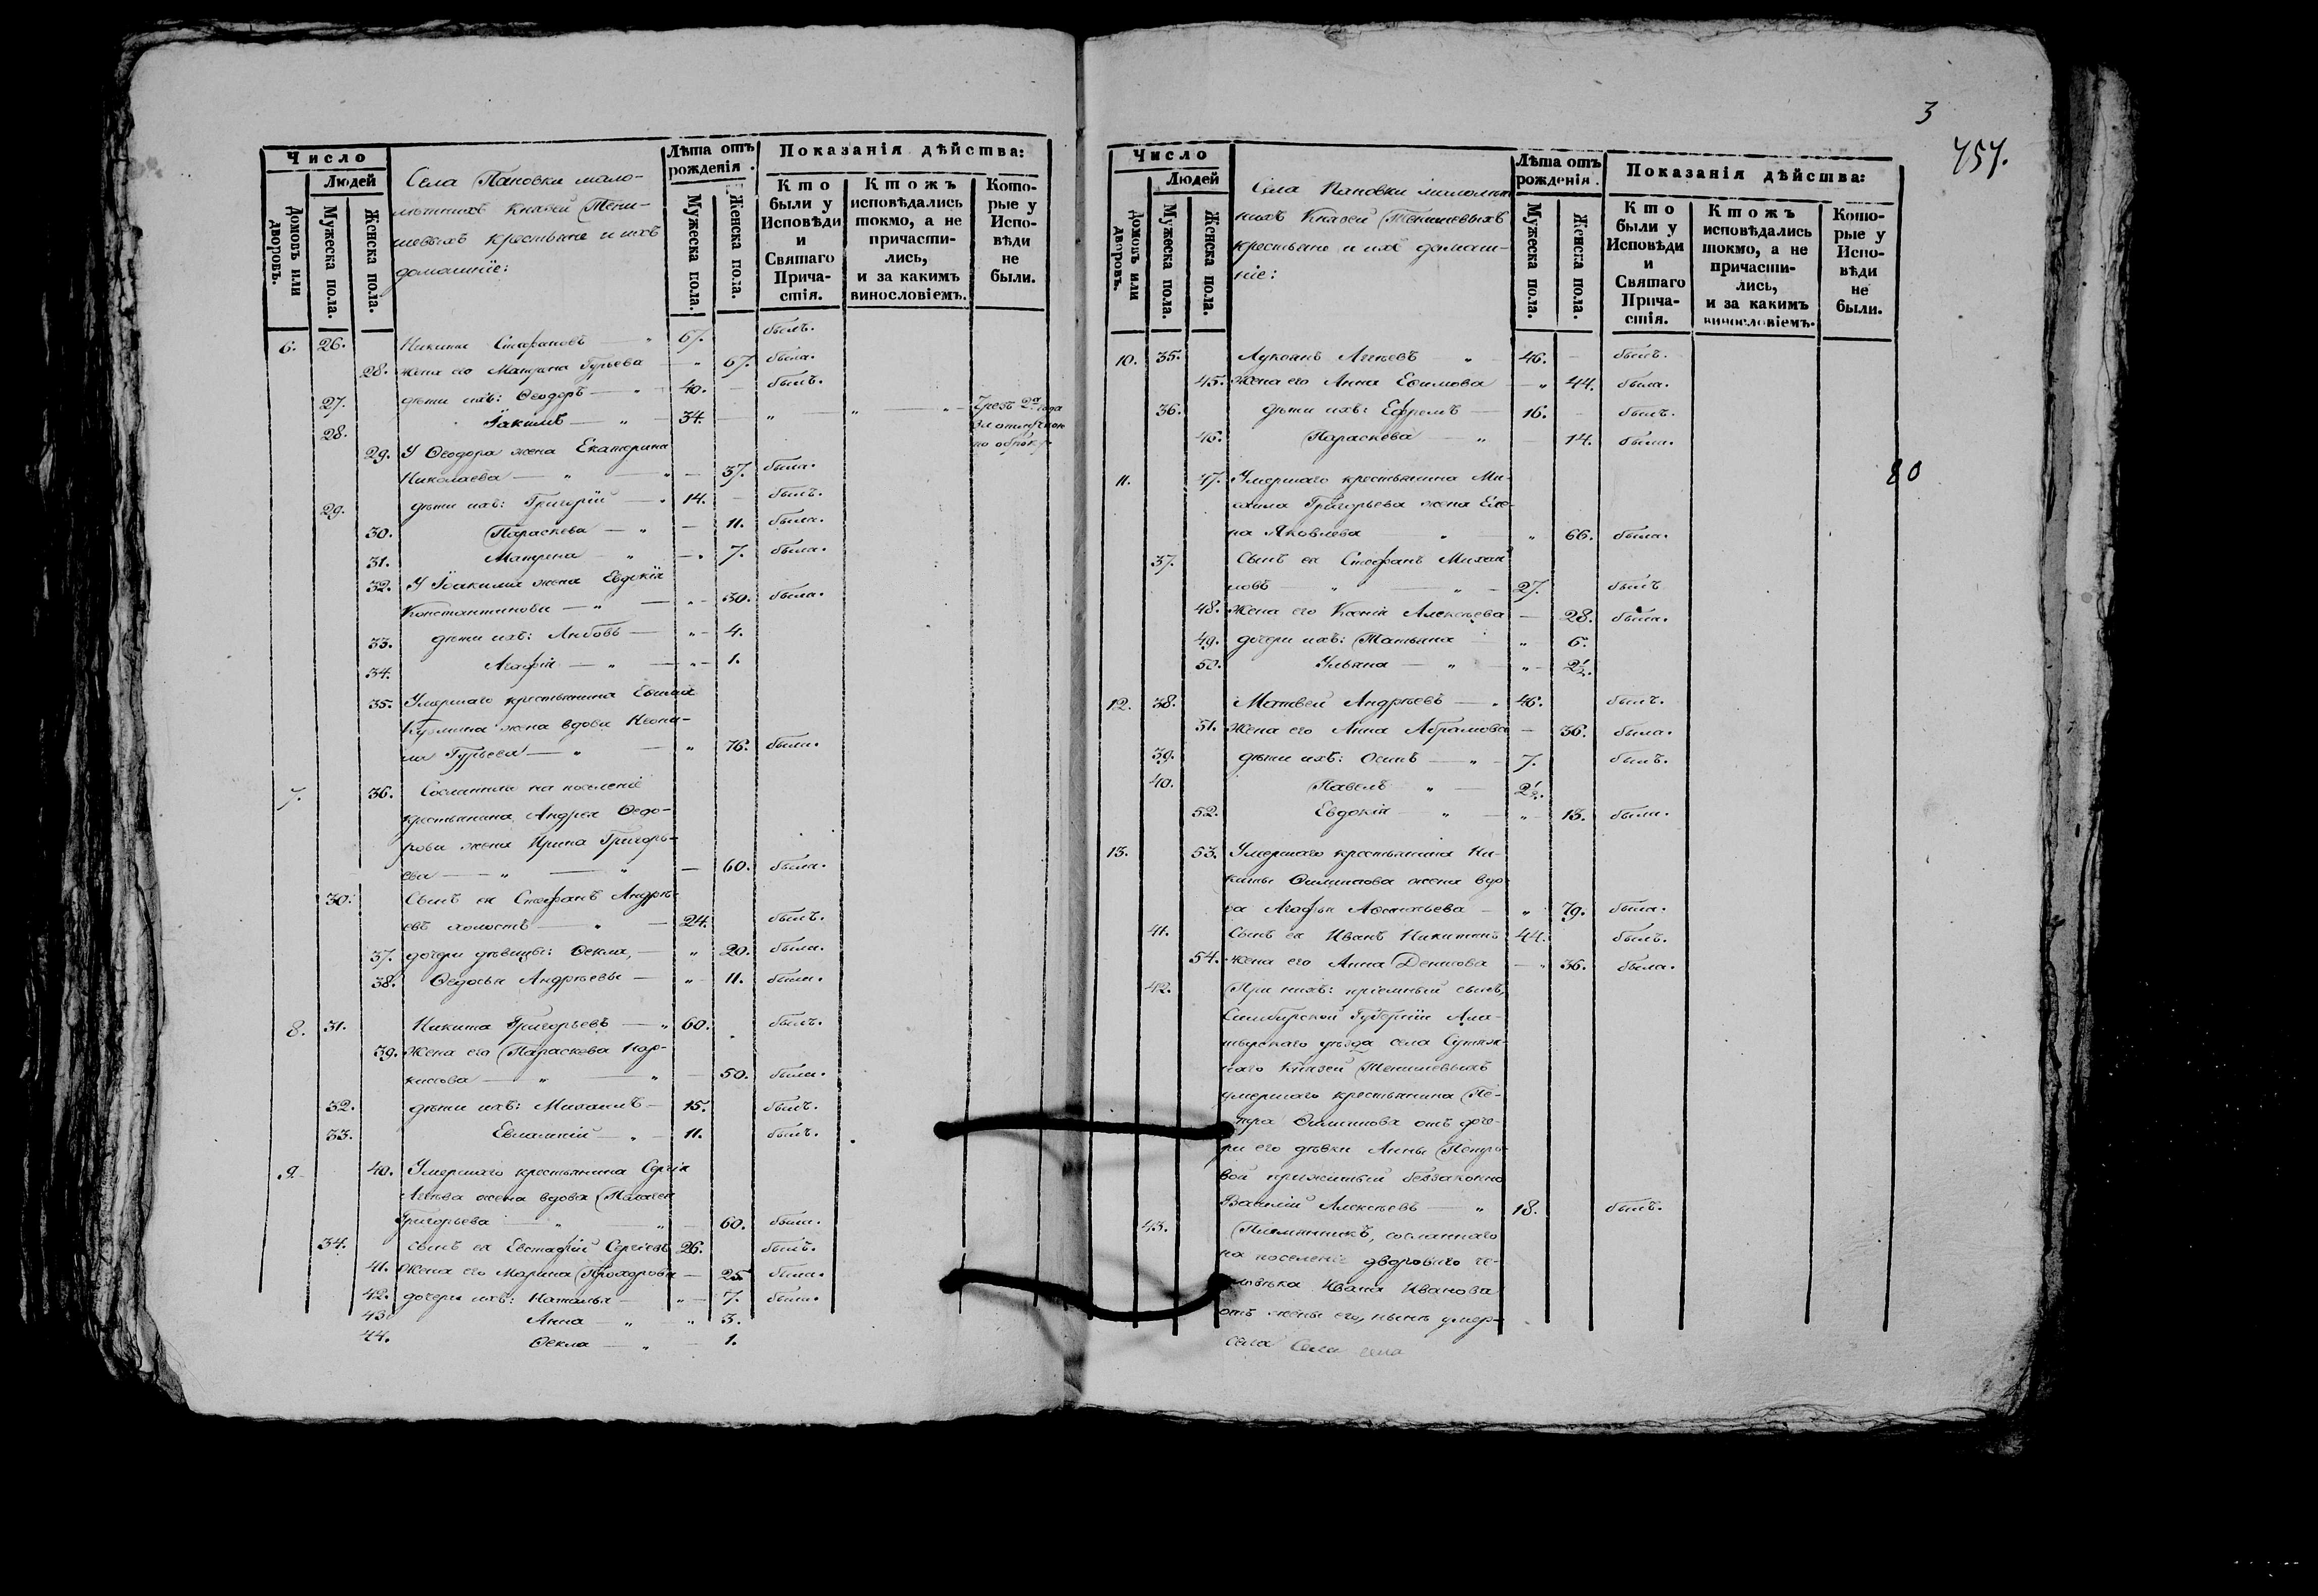 Число
Людей
Домовъ или дворовъ.
Мужеска пола.
Женска пола.
Села Пановки мало-
лѣтнихъ Князей Тени-
шевыхъ крестьяне и ихъ
домашніе:
Лѣта отъ рожденія.
Мужеска пола.
Женска пола.
Показанія дѣйства:
Кто были у Исповѣди и Святаго Прича-стія.
Ктожъ исповѣдались токмо, а не причасти-лись, и за какимъ винословіемъ.
Кото-рые у Испо-вѣди не были.
6. 26. Никита Стефановъ — „ 67. былъ.
28. жена его Матрена Гурьева — „ 67. была.
27. дѣти ихъ: Ѳеодоръ — „ 40. — былъ.
28. Іакимъ — „ — 34. — „ — „ — „ — Чрезъ 2а года
29. У Ѳеодора жена Екатерина
Николаева — „ — „ — 37. была.
29. дѣти ихъ: Григорій — „ 14. — былъ.
30. Параскева — „ — 11. была.
31. Матрена — „ — „ 7. была.
32. У Іоакима жена Евдокія
Константинова — „ — „ — 30. была.
33. дѣти ихъ: Любовь — „ — 4.
34. Агафія — „ — „ — 1.
35. Умершаго крестьянина
Кузмина жена вдова Неони-
ла Гурьева — „ — „ 76. была.
7. 36. Сосланнаго на поселеніе
крестьянина Андрея Ѳедо-
рова жена Ирина Григорь-
ева — „ — „ — 60. была.
30. Сынъ ея Стефанъ Андрѣ-
евъ холостъ — „ — 24. былъ.
37. дочери дѣвицы: Ѳекла, — „ 20. была.
38. Ѳедосья Андрѣевы — „ 11. была.
8. 31. Никита Григорьевъ — „ 60. былъ.
39. Жена его Параскева Нар-
кисова — „ — „ — 50. была.
32. дѣти ихъ: Михаилъ — 15. былъ.
33. Евлампій — „ — 11. былъ.
9. 40. Умершаго крестьянина Сергія
жена вдова
Григорьева — „ — „ — 60. была.
34. сынъ ея Евстафій Сергіевъ 26. былъ.
41. Жена его Марина Прохорова — 25 была.
42. дочери ихъ: Наталья — „ — 7. была.
43. Анна — „ — „ 3.
44. Ѳекла — „ — 1.
3
757.
Число
Людей
Домовъ или дворовъ.
Мужеска пола.
Женска пола.
Села Пановки малолѣт-
нихъ Князей Тенишевыхъ
крестьяне и ихъ домаш-
ніе:
Лѣта отъ рожденія.
Мужеска пола.
Женска пола.
Показанія дѣйства:
Кто были у Исповѣди и Святаго Прича-стія.
Ктожъ исповѣдались токмо, а не причасти-лись, и за какимъ винословіемъ.
Кото-рые у Испо-вѣди не были.
10. 35. Лукьянъ „ — 46. — былъ.
45. Жена его Анна Ефимова — „ 44. была.
36. дѣти ихъ: Ефремъ — 16. — былъ.
46. Параскева — „ — 14. была.
80
11. 47. Умершаго крестьянина Ми-
хаила Григорьева жена Еле-
на Яковлева — „ — „ 66. была.
37. Сынъ ея Стефанъ Михаи-
ловъ — „ — „ — 27. былъ
48. Жена его Ксенія Алексѣева — 28. была.
49. дочери ихъ: Татьяна — „ 6.
50. Ульяна — „ — „ — 2½.
12. 38. Матвей Андрѣевъ — „ 46. былъ.
51. Жена его Анна Абрамова — 36. была.
39. дѣти ихъ: Осипъ — „ — 7. былъ.
40. Павелъ „ — 2½.
52. Евдокія — „ — „ — 13. была.
13. 53. Умершаго крестьянина Ни-
киты Филипова жена вдо-
ва Агафья — „ 79. была.
41. Сынъ ея Иванъ Никитинъ 44. былъ.
54. жена его Анна Денисова — „ 36. была.
42. При нихъ: пріемный сынъ,
Симбирской Губерніи Ала-
тырскаго уѣзда села
Князей Тенишевыхъ
умершаго крестьянина Пе-
тра Филипова отъ доче-
ри его дѣвки Анны Петро-
вой прижитый беззаконно
Василій Алексѣевъ — „ 18. былъ.
43. Племянникъ, сосланнаго
на поселеніе двороваго че-
ловѣка Ивана Иванова
отъ жены его, нынѣ умер-
Села